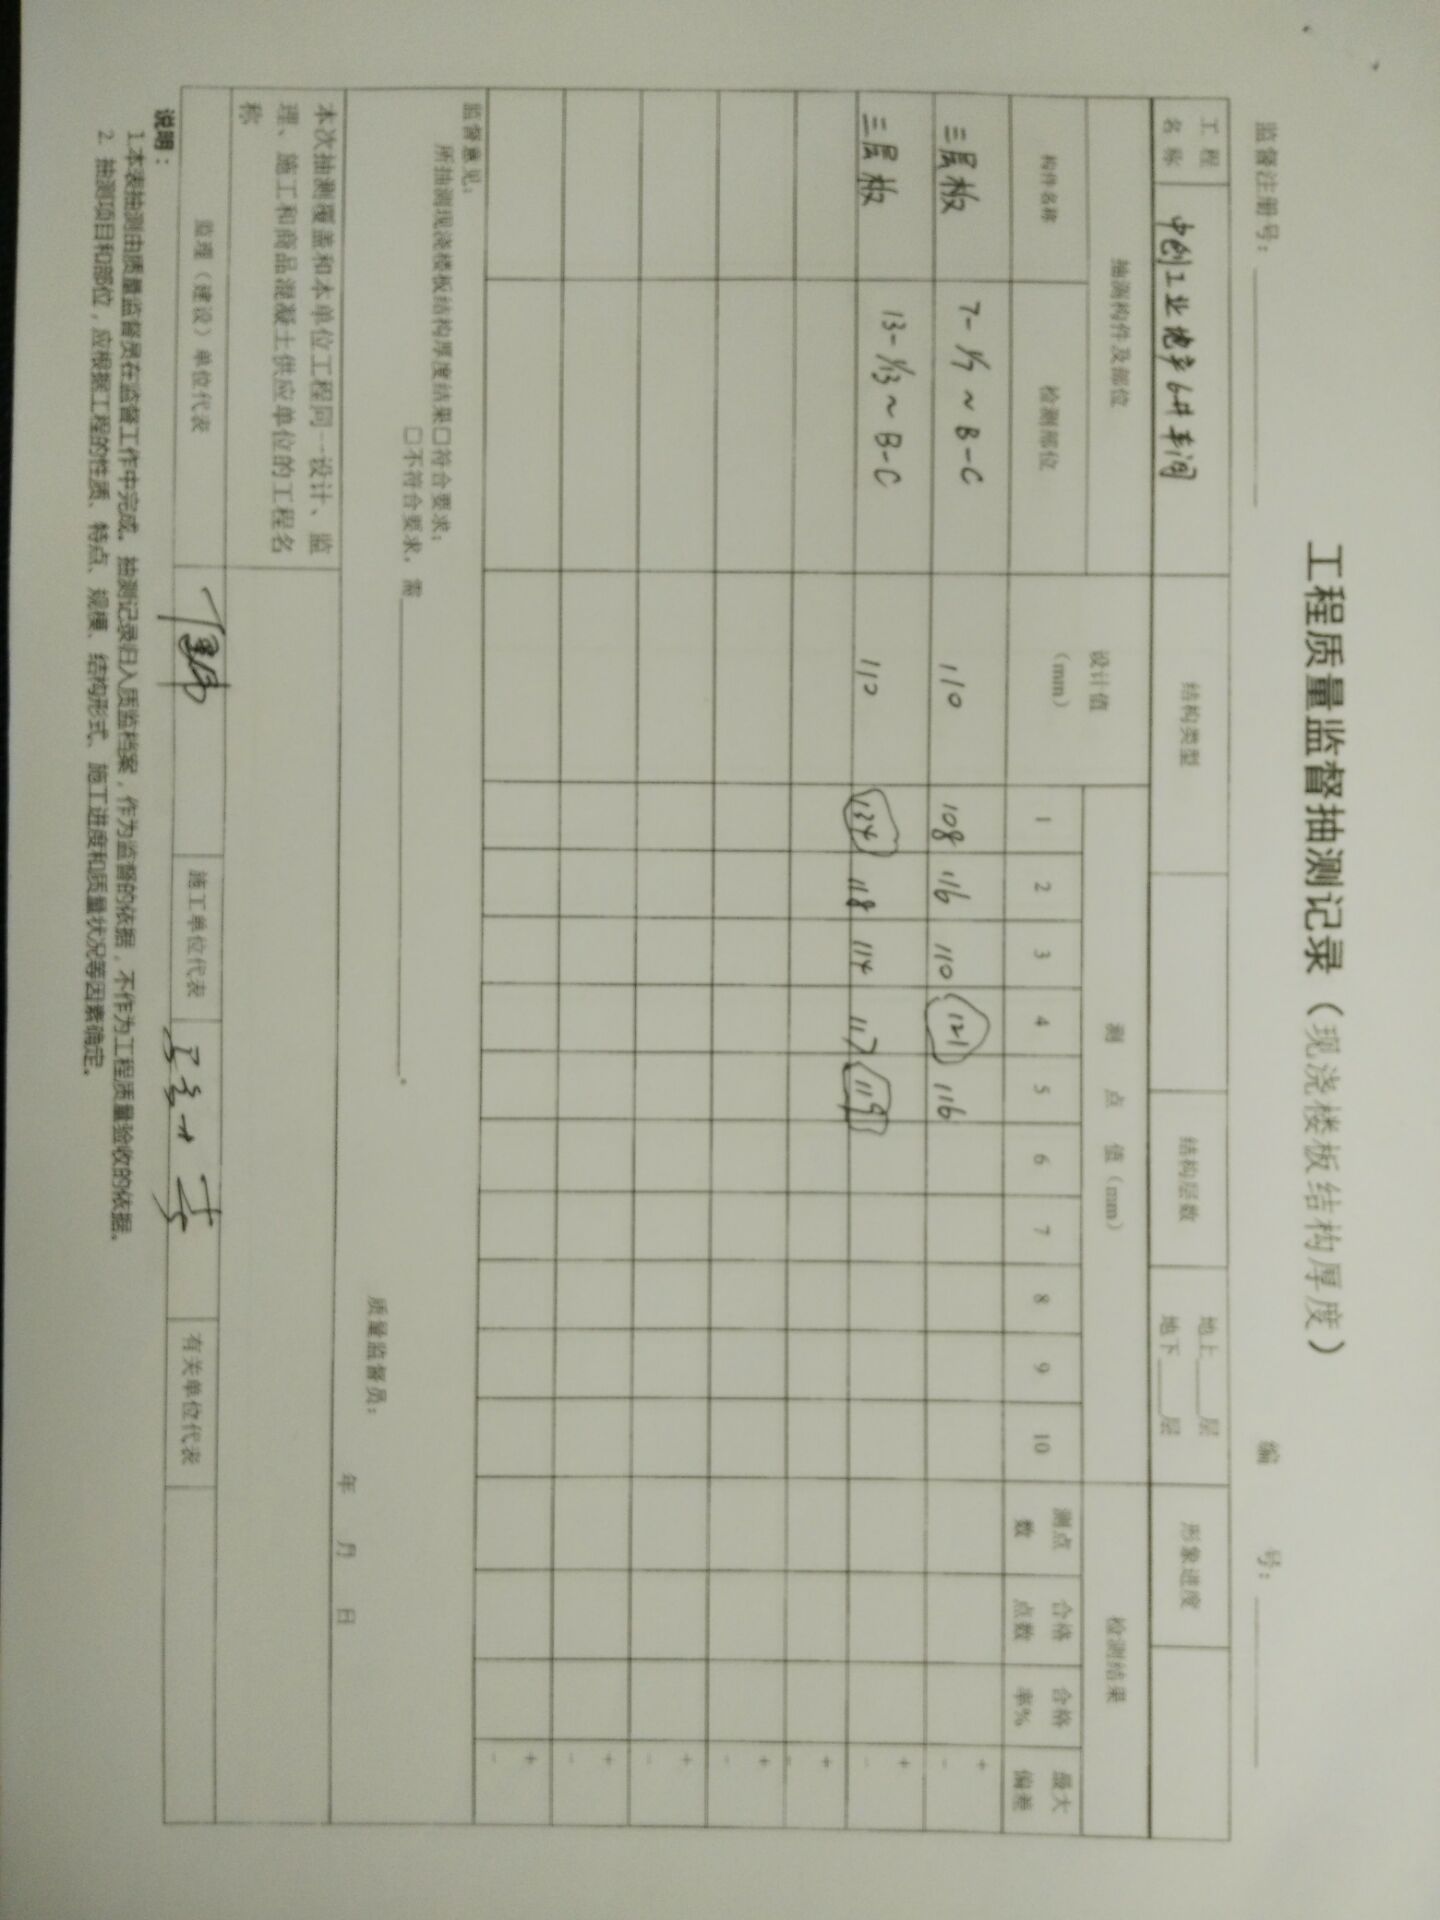 工程质量监督抽测记录（现浇楼板结构厚度）
监督注册号： 编 号：
工程名称 中创工业地产6#车间 结构类型 结构层数 地上 层 地下 层 形象进度
抽测构件及部位 设计值（mm） 测 点 值（mm） 检测结果
构件名称 检测部位 1 2 3 4 5 6 7 8 9 10 测点数 合格点数 合格率% 最大偏差
三层板 7-1/7~B-C 110 108 116 110 121 116 + -
三层板 13-1/13~B-C 110 134 118 114 117 119 + -
+ -
+ -
+ -
+ -
+ -
监督意见：
所抽测现浇楼板结构厚度结果□符合要求；
□不符合要求，需 。
质量监督员：
年 月 日
本次抽测覆盖和本单位工程同一设计、监
理、施工和商品混凝土供应单位的工程名
称
监理（建设）单位代表 施工单位代表 有关单位代表
说明：
1.本表抽测由质量监督员在监督工作中完成。抽测记录归入质监档案，作为监督的依据，不作为工程质量验收的依据。
2. 抽测项目和部位，应根据工程的性质、特点、规模、结构形式、施工进度和质量状况等因素确定。